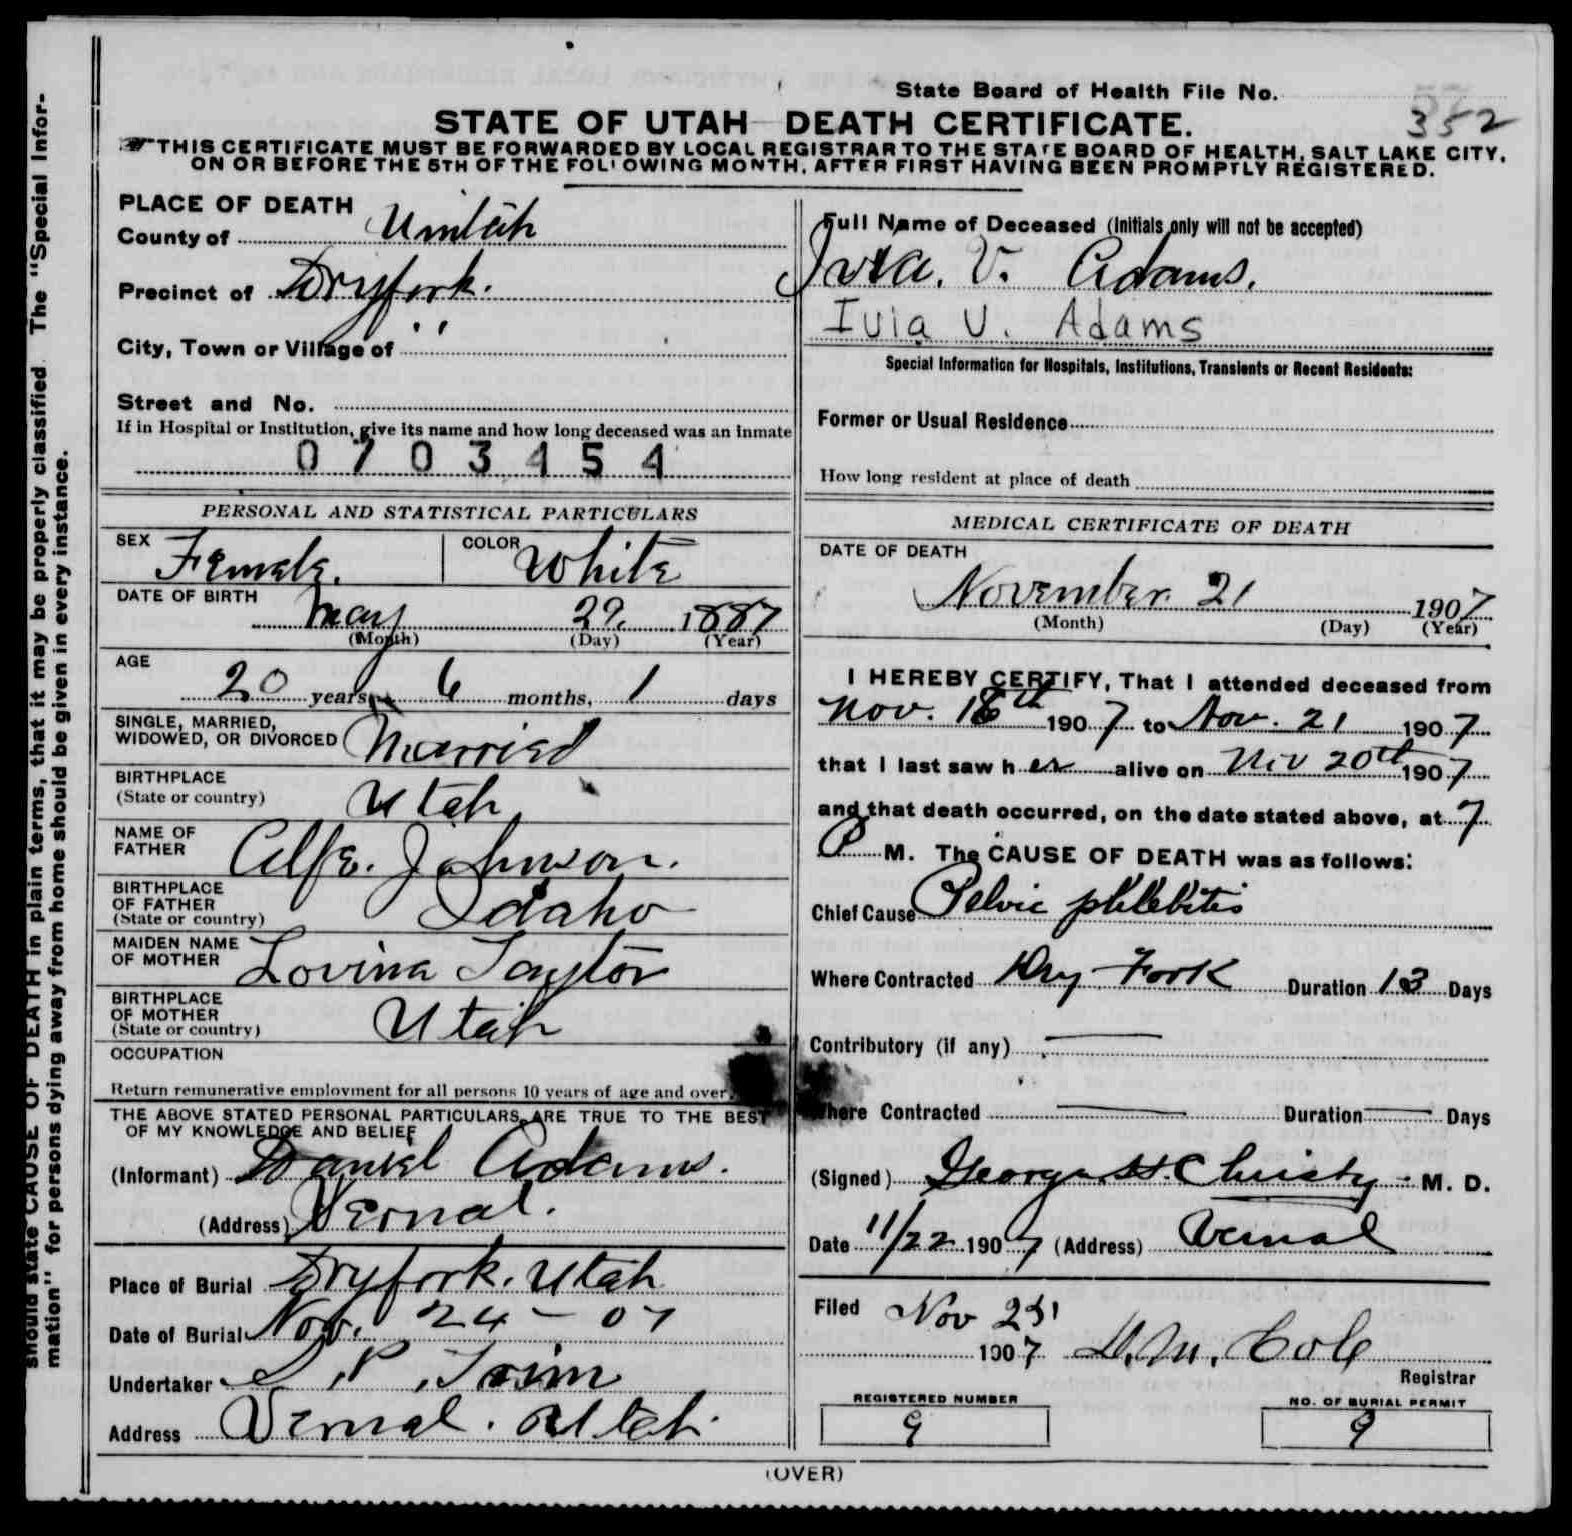 State Board of Health File No. 352
STATE OF UTAH DEATH CERTIFICATE.
THIS CERTIFICATE MUST BE FORWARDED BY LOCAL REGISTRAR TO THE STATE BOARD OF HEALTH, SALT LAKE CITY,
ON OR BEFORE THE 5TH OF THE FOLLOWING MONTH, AFTER FIRST HAVING BEEN PROMPTLY REGISTERED.
The "Special Infor-
should state CAUSE OF DEATH in plain terms, that it may be properly classified
mation" for persons dying away from home should be given in every instance.
PLACE OF DEATH
County of Uintah
Precinct of Dryfork.
City, Town or Village of " "
Street and No.
If in Hospital or Institution, give its name and how long deceased was an inmate
0703454
PERSONAL AND STATISTICAL PARTICULARS
SEX Female. COLOR White
DATE OF BIRTH May 29, 1887
(Month) (Day) (Year)
AGE 20 years, 6 months, 1 days
SINGLE, MARRIED,
WIDOWED, OR DIVORCED Married
BIRTHPLACE
(State or country) Utah
NAME OF
FATHER Alfe. Johnson.
BIRTHPLACE
OF FATHER
(State or country) Idaho
MAIDEN NAME
OF MOTHER Lovina Taylor
BIRTHPLACE
OF MOTHER
(State or country) Utah
OCCUPATION
Return remunerative employment for all persons 10 years of age and over
THE ABOVE STATED PERSONAL PARTICULARS ARE TRUE TO THE BEST
OF MY KNOWLEDGE AND BELIEF
(Informant) Daniel Adams.
(Address) Vernal.
Place of Burial Dryfork. Utah
Date of Burial Nov. 24 - 07
Undertaker S. P. Trim
Address Vernal. Utah.
Full Name of Deceased (Initials only will not be accepted)
Ivia. V. Adams.
Ivia V. Adams
Special Information for Hospitals, Institutions, Transients or Recent Residents:
Former or Usual Residence
How long resident at place of death
MEDICAL CERTIFICATE OF DEATH
DATE OF DEATH
November 21 1907
(Month) (Day) (Year)
I HEREBY CERTIFY, That I attended deceased from
Nov. 16th 1907 to Nov. 21 1907
that I last saw her alive on Nov 20th 1907
and that death occurred, on the date stated above, at 7
P M. The CAUSE OF DEATH was as follows:
Chief Cause Pelvic phlebitis
Where Contracted Dry Fork Duration 13 Days
Contributory (if any) —
Where Contracted — Duration — Days
(Signed) George H. Christy M. D.
Date 11/22 1907 (Address) Vernal
Filed Nov 25
1907 D. M. Cole
Registrar
REGISTERED NUMBER
9
NO. OF BURIAL PERMIT
9
(OVER)